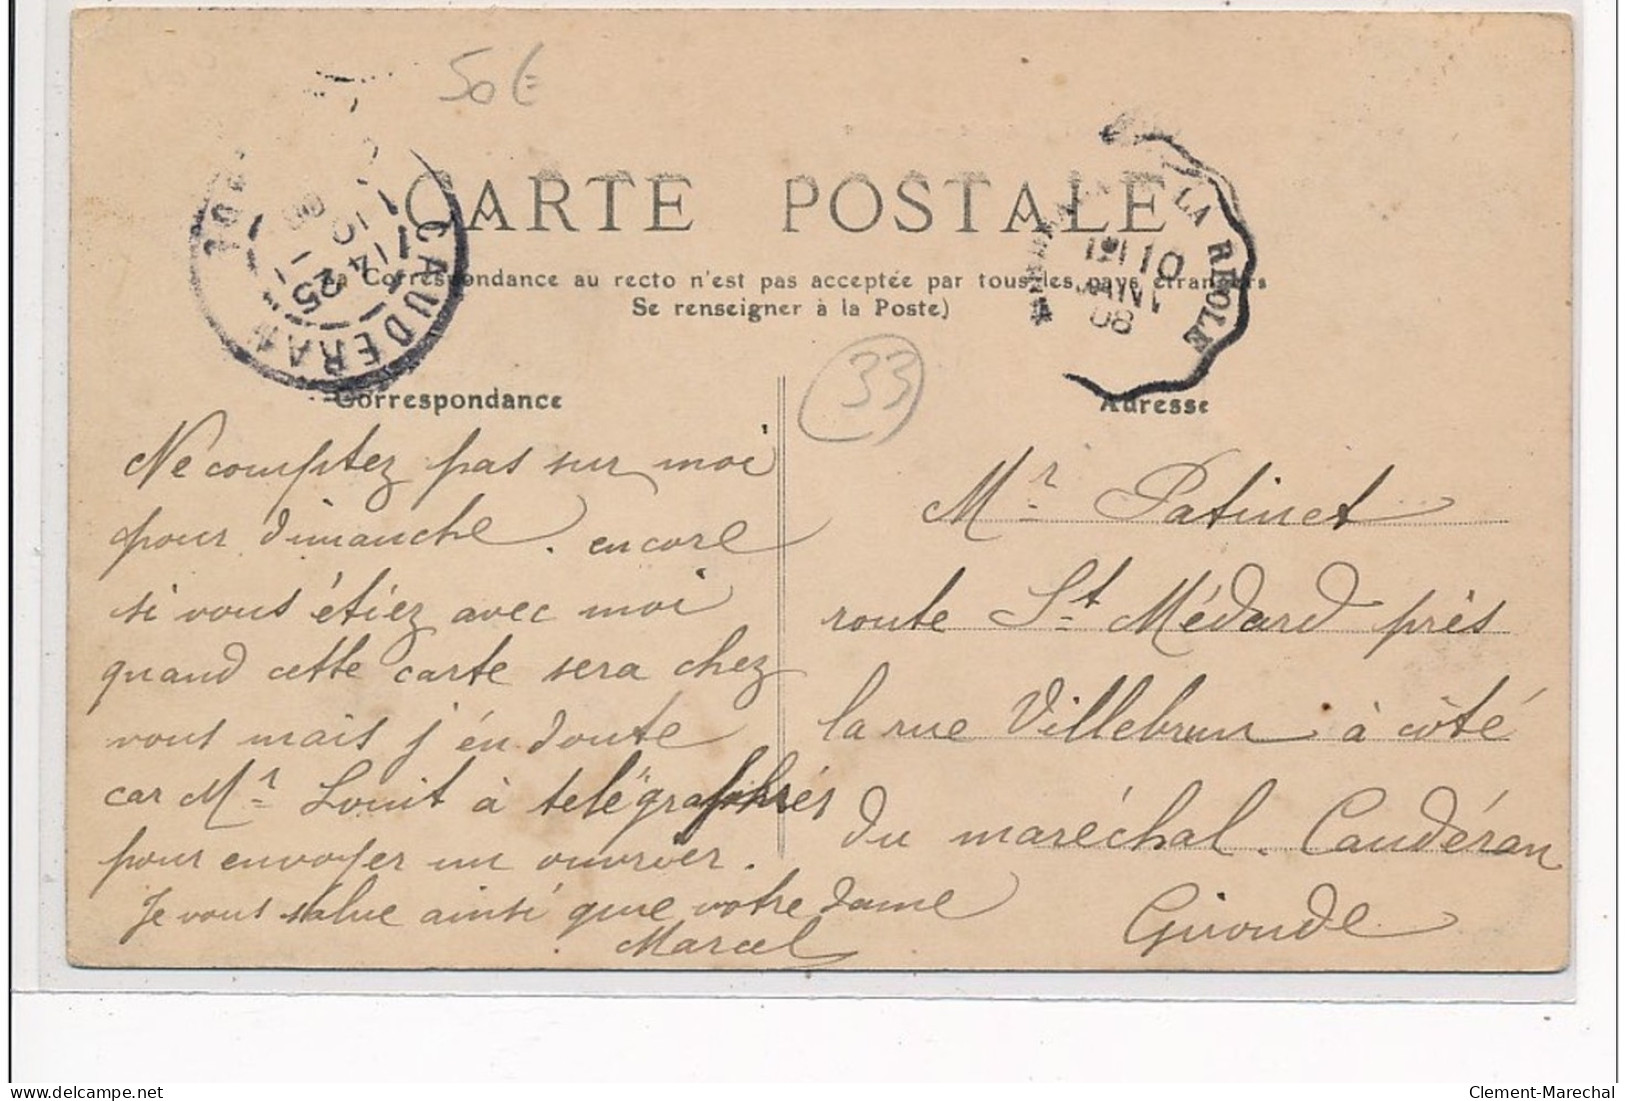 50€
CARTE POSTALE
La Correspondance au recto n'est pas acceptée par tous les pays étrangers
Se renseigner à la Poste)
CAUDERAN
25
14
10
LA RÉOLE
10
JANV
08
33
Correspondance
Ne comptez pas sur moi
pour dimanche. encore
si vous étiez avec moi
quand cette carte sera chez
vous mais j'en doute
car Mr Louit à télégraphiés
pour envoyer un ouvrier.
Je vous salue ainsi que votre dame
Marcel
Adresse
Mr Patinet
route St Médard près
la rue Villebrun à côté
du maréchal. Caudéran
Gironde
Clement-Marechal